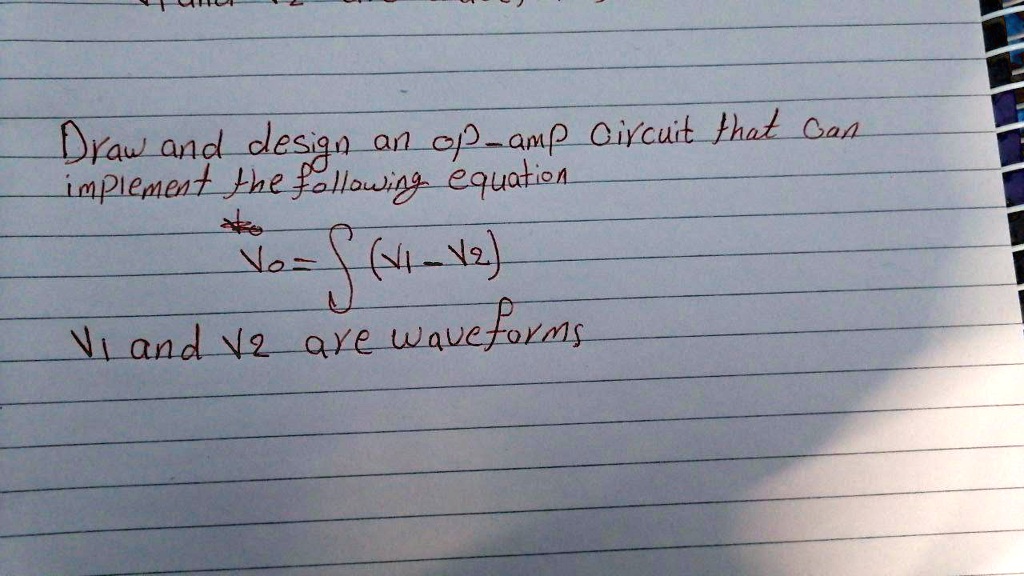 Draw and design an op-amp circuit that can
implement the following equation
Vo = ∫ (V1 - V2)
V1 and V2 are waveforms